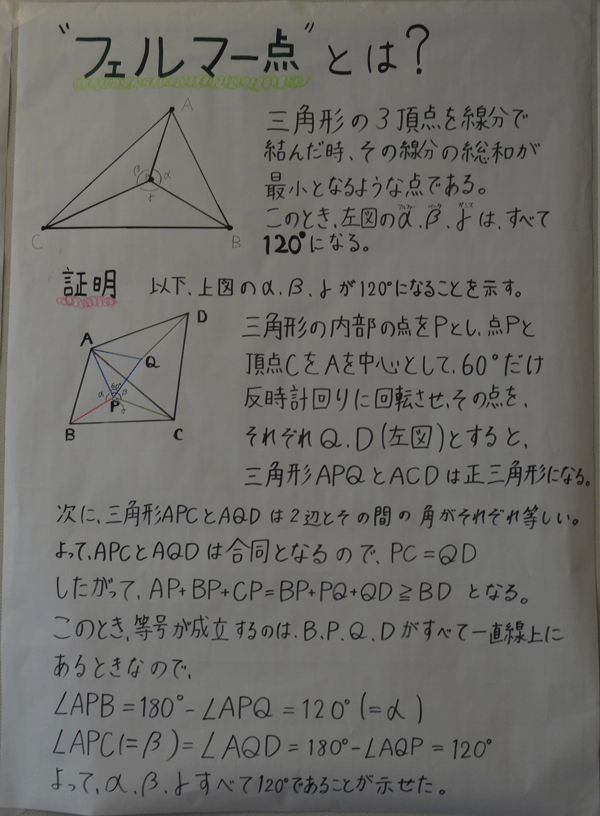 "フェルマー点"とは?
A
β
P
α
γ
C
B
三角形の3頂点を線分で
結んだ時、その線分の総和が
最小となるような点である。
アルファ ベータ ガンマ
このとき、左図のα、β、γは、すべて
120°になる。
証明
以下、上図のα、β、γが120°になることを示す。
D
A
Q
60°
α
β
P
γ
B
C
三角形の内部の点をPとし、点Pと
頂点CをAを中心として、60°だけ
反時計回りに回転させ、その点を、
それぞれQ、D(左図)とすると、
三角形APQとACDは正三角形になる。
次に、三角形APCとAQDは2辺とその間の角がそれぞれ等しい。
よって、APCとAQDは合同となるので、PC=QD
したがって、AP+BP+CP=BP+PQ+QD≧BDとなる。
このとき、等号が成立するのは、B、P、Q、Dがすべて一直線上に
あるときなので、
∠APB=180°-∠APQ=120°(=α)
∠APC(=β)=∠AQD=180°-∠AQP=120°
よって、α、β、γすべて120°であることが示せた。